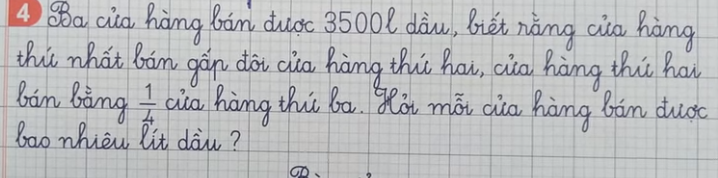 4 Ba cửa hàng bán được 3500l dầu, biết rằng cửa hàng
thứ nhất bán gấp đôi cửa hàng thứ hai, cửa hàng thứ hai
bán bằng 1/4 cửa hàng thứ ba. Hỏi mỗi cửa hàng bán được
bao nhiêu lít dầu?